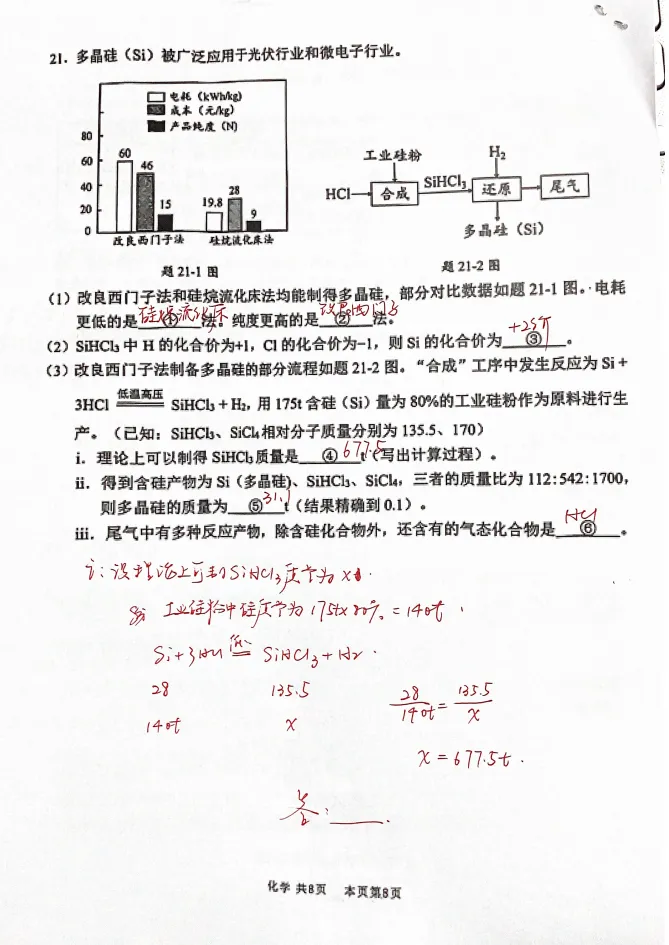 21. 多晶硅（Si）被广泛应用于光伏行业和微电子行业。
电耗（kWh/kg)
成本（元/kg)
产品纯度（N)
80
60
40
20
0
60
46
15
19.8
28
9
改良西门子法 硅烷流化床法
题 21-1 图
工业硅粉
H₂
HCl 合成 SiHCl₃ 还原 尾气
多晶硅（Si）
题 21-2 图
（1）改良西门子法和硅烷流化床法均能制得多晶硅，部分对比数据如题 21-1 图。电耗
更低的是 ① 法。纯度更高的是 ② 法。
硅烷流化床
改良西门子
（2）SiHCl₃ 中 H 的化合价为+1，Cl 的化合价为−1，则 Si 的化合价为 ③ 。
（3）改良西门子法制备多晶硅的部分流程如题 21-2 图。“合成”工序中发生反应为 Si +
3HCl 低温高压 SiHCl₃ + H₂，用 175t 含硅（Si）量为 80%的工业硅粉作为原料进行生
产。（已知：SiHCl₃、SiCl₄ 相对分子质量分别为 135.5、170）
i. 理论上可以制得 SiHCl₃ 质量是 ④ t（写出计算过程）。
677.5
ii. 得到含硅产物为 Si（多晶硅）、SiHCl₃、SiCl₄，三者的质量比为 112:542:1700，
则多晶硅的质量为 ⑤ t（结果精确到 0.1）。
31.1
iii. 尾气中有多种反应产物，除含硅化合物外，还含有的气态化合物是 ⑥ 。
HCl
i：设理论上可制SiHCl₃质量为 x
工业硅粉中硅质量为 175t×80% = 140t
Si+3HCl SiHCl₃+H₂
28 135.5
140t x
28/140t = 135.5/x
x = 677.5t .
答：
化学 共8页 本页第8页